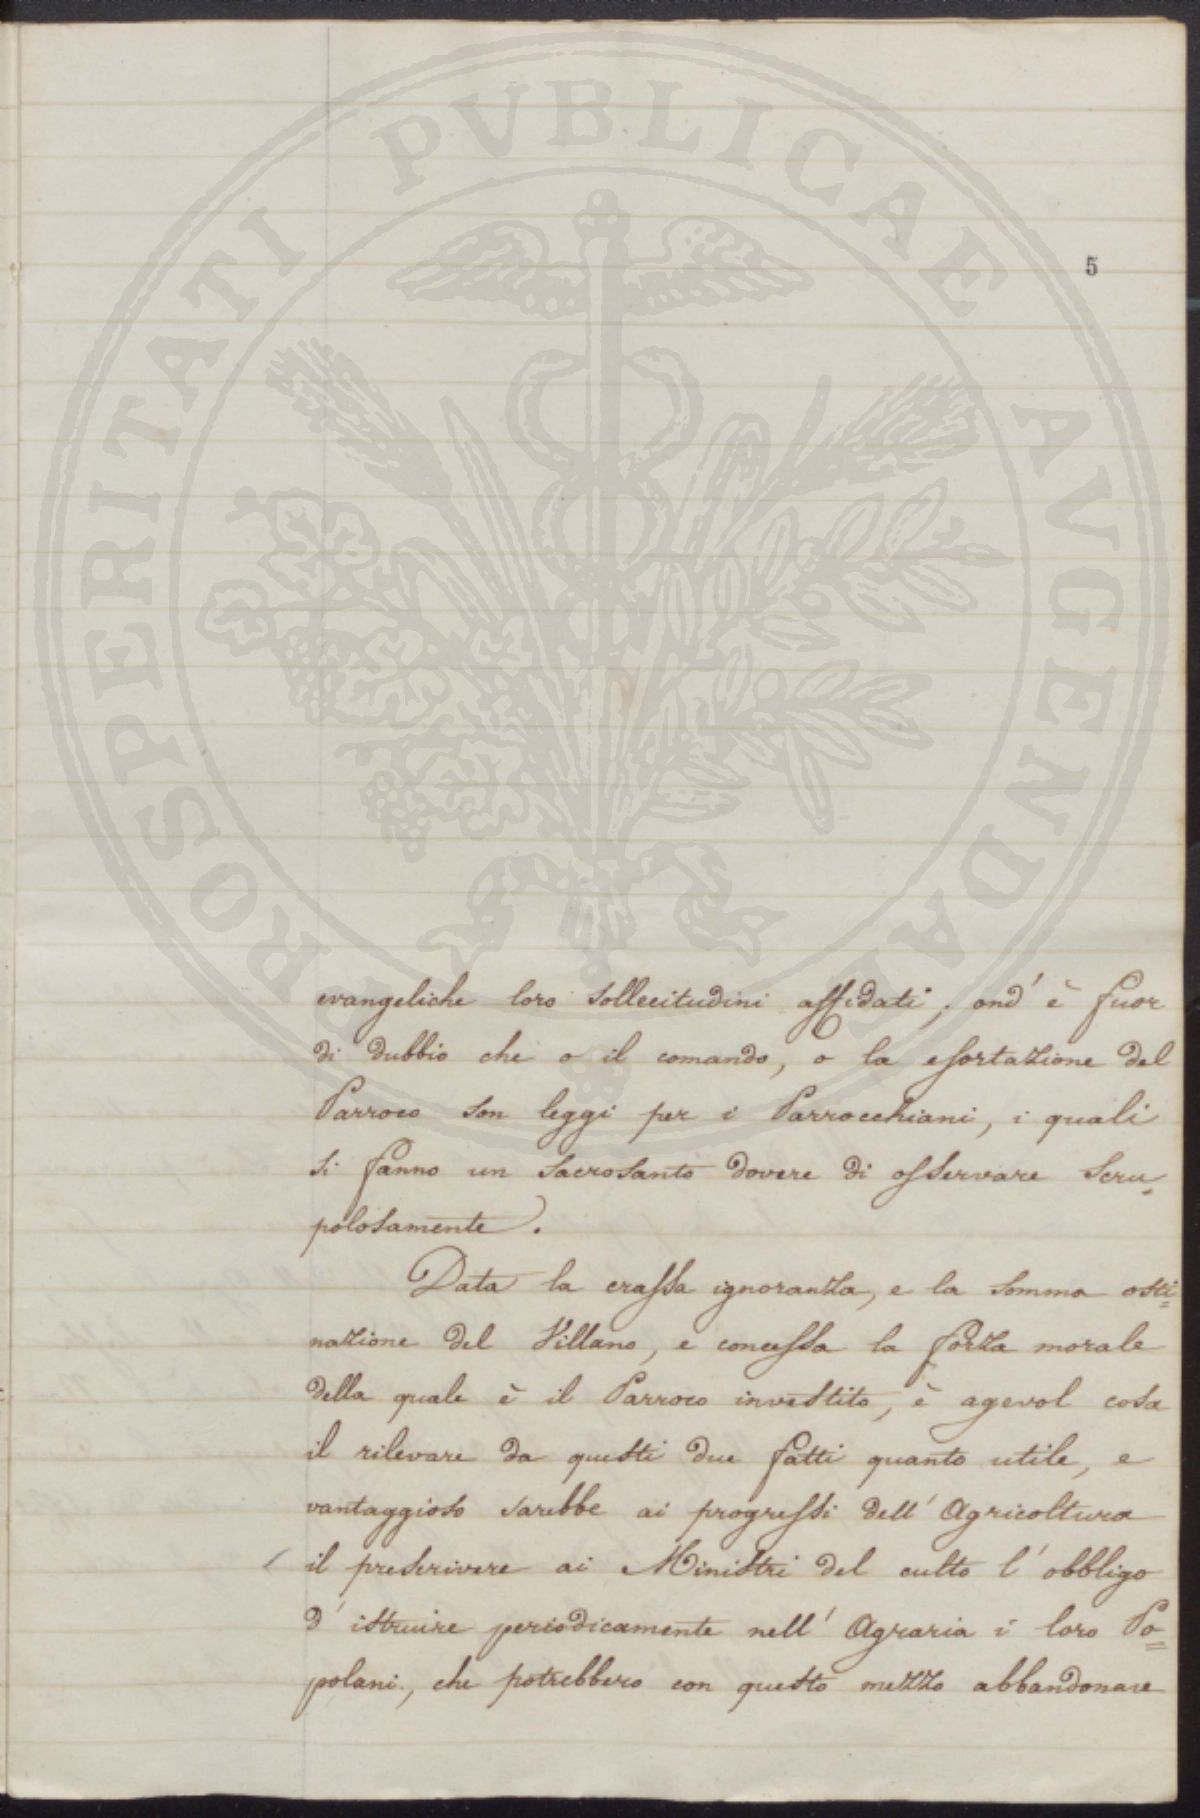 PROSPERITATI PVBLICAE AVGENDAE
5
evangeliche loro sollecitudini affidati; ond' è fuor
di dubbio che o il comando, o la esortazione del
Parroco son leggi per i Parrocchiani, i quali
si fanno un sacrosanto dovere di osservare scru-
polosamente.
Data la crassa ignoranza, e la somma osti=
nazione del Villano, e concessa la forza morale
della quale è il Parroco investito, è agevol cosa
il rilevare da questi due fatti quanto utile, e
vantaggioso sarebbe ai progressi dell' Agricoltura
il prescrivere ai Ministri del culto l' obbligo
d' istruire periodicamente nell' Agraria i loro Po=
polani, che potrebbero con questo mezzo abbandonare